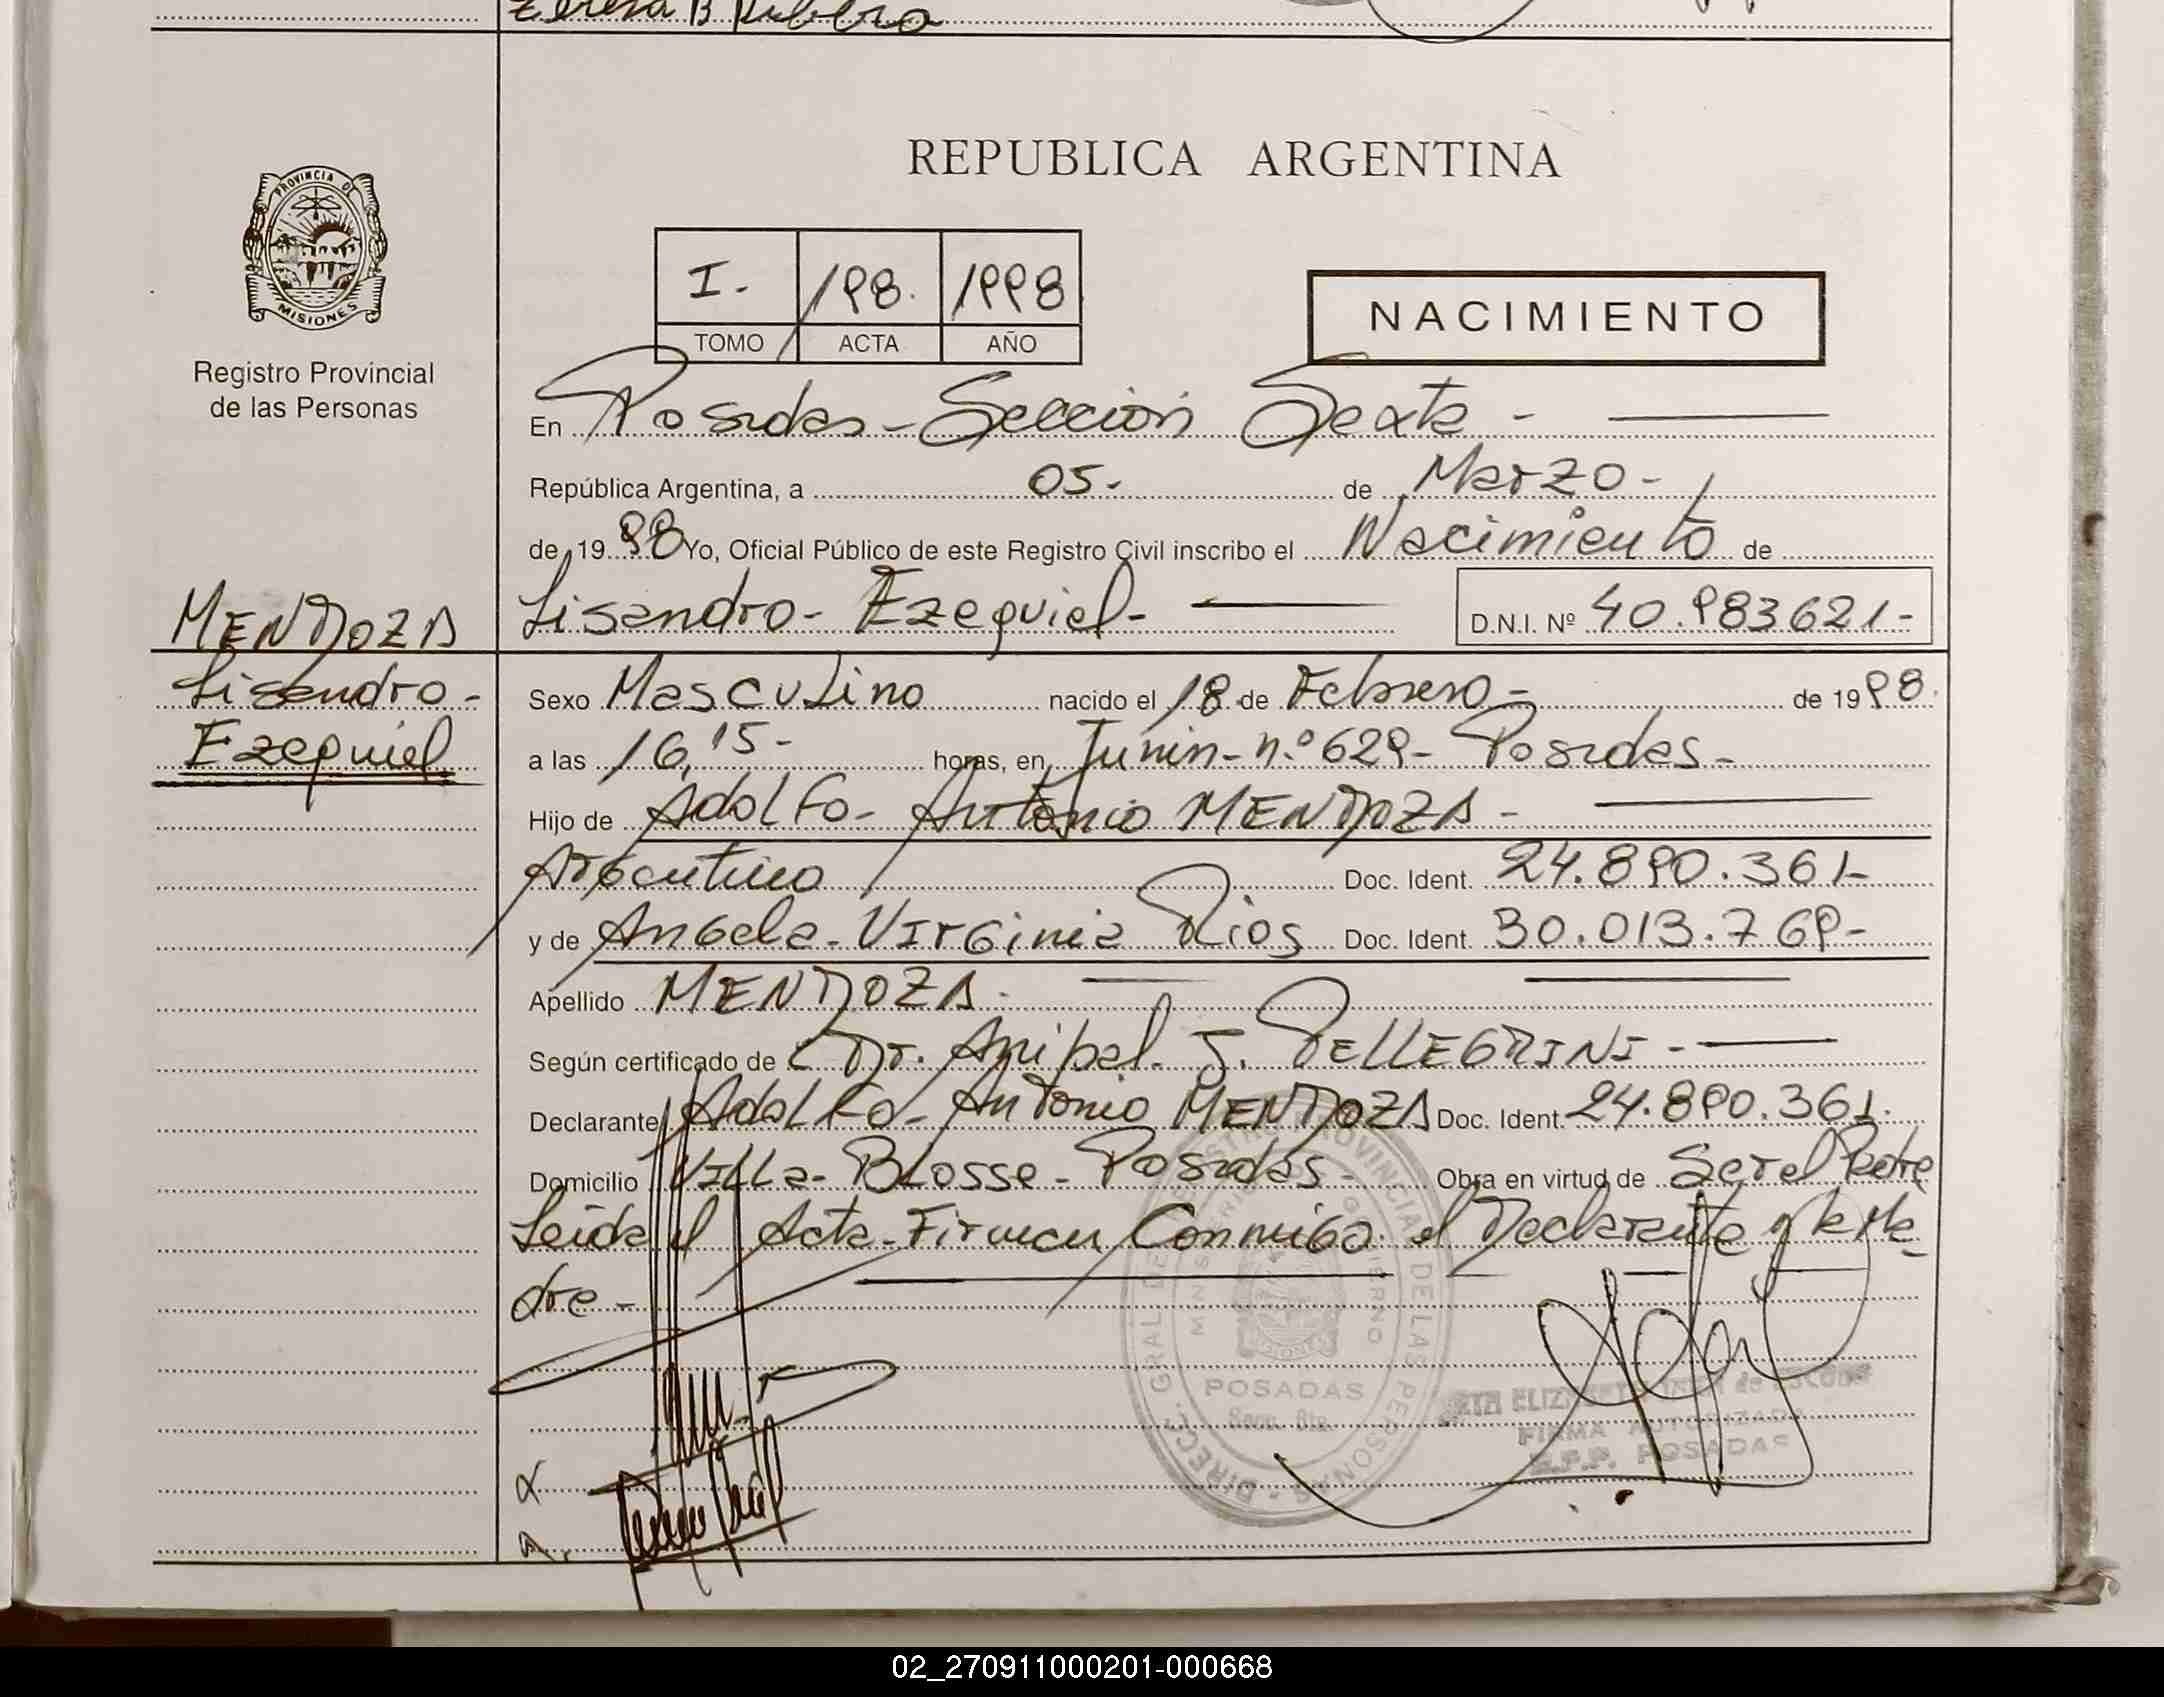 Teresa B Ribero
REPUBLICA ARGENTINA
PROVINCIA DE
MISIONES
Registro Provincial
de las Personas
I. 198. 1998
TOMO ACTA AÑO
NACIMIENTO
En Posadas - Sección Sexta -
República Argentina, a 05. de Marzo -
de 1998 Yo, Oficial Público de este Registro Civil inscribo el Nacimiento de
Lisandro - Ezequiel - D.N.I. Nº 40.983621-
MENDOZA
Lisandro -
Ezequiel
Sexo Masculino nacido el 18 de Febrero - de 1998.
a las 16,15- horas, en Junin - n.º 629 - Posadas -
Hijo de Adolfo - Antonio MENDOZA -
Argentino Doc. Ident. 24.890.361-
y de Angela - Virginia Rios Doc. Ident. 30.013.769-
Apellido MENDOZA -
Según certificado de Dr. Anibal - J. PELLEGRINI -
Declarante Adolfo - Antonio MENDOZA Doc. Ident. 24.890.361.
Domicilio Villa - Blosse - Posadas - Obra en virtud de Ser el Padre
Leida el Acta - Firman Conmigo el Declarante y la Ma-
dre -
DIRECC. GRAL DE REGISTRO PROVINCIAL DE LAS PERSONAS
MINISTERIO GOBIERNO
MISIONES
POSADAS
Secc. 6ta.
FIRMA AUTORIZADA
R.P.P. POSADAS
02_270911000201-000668